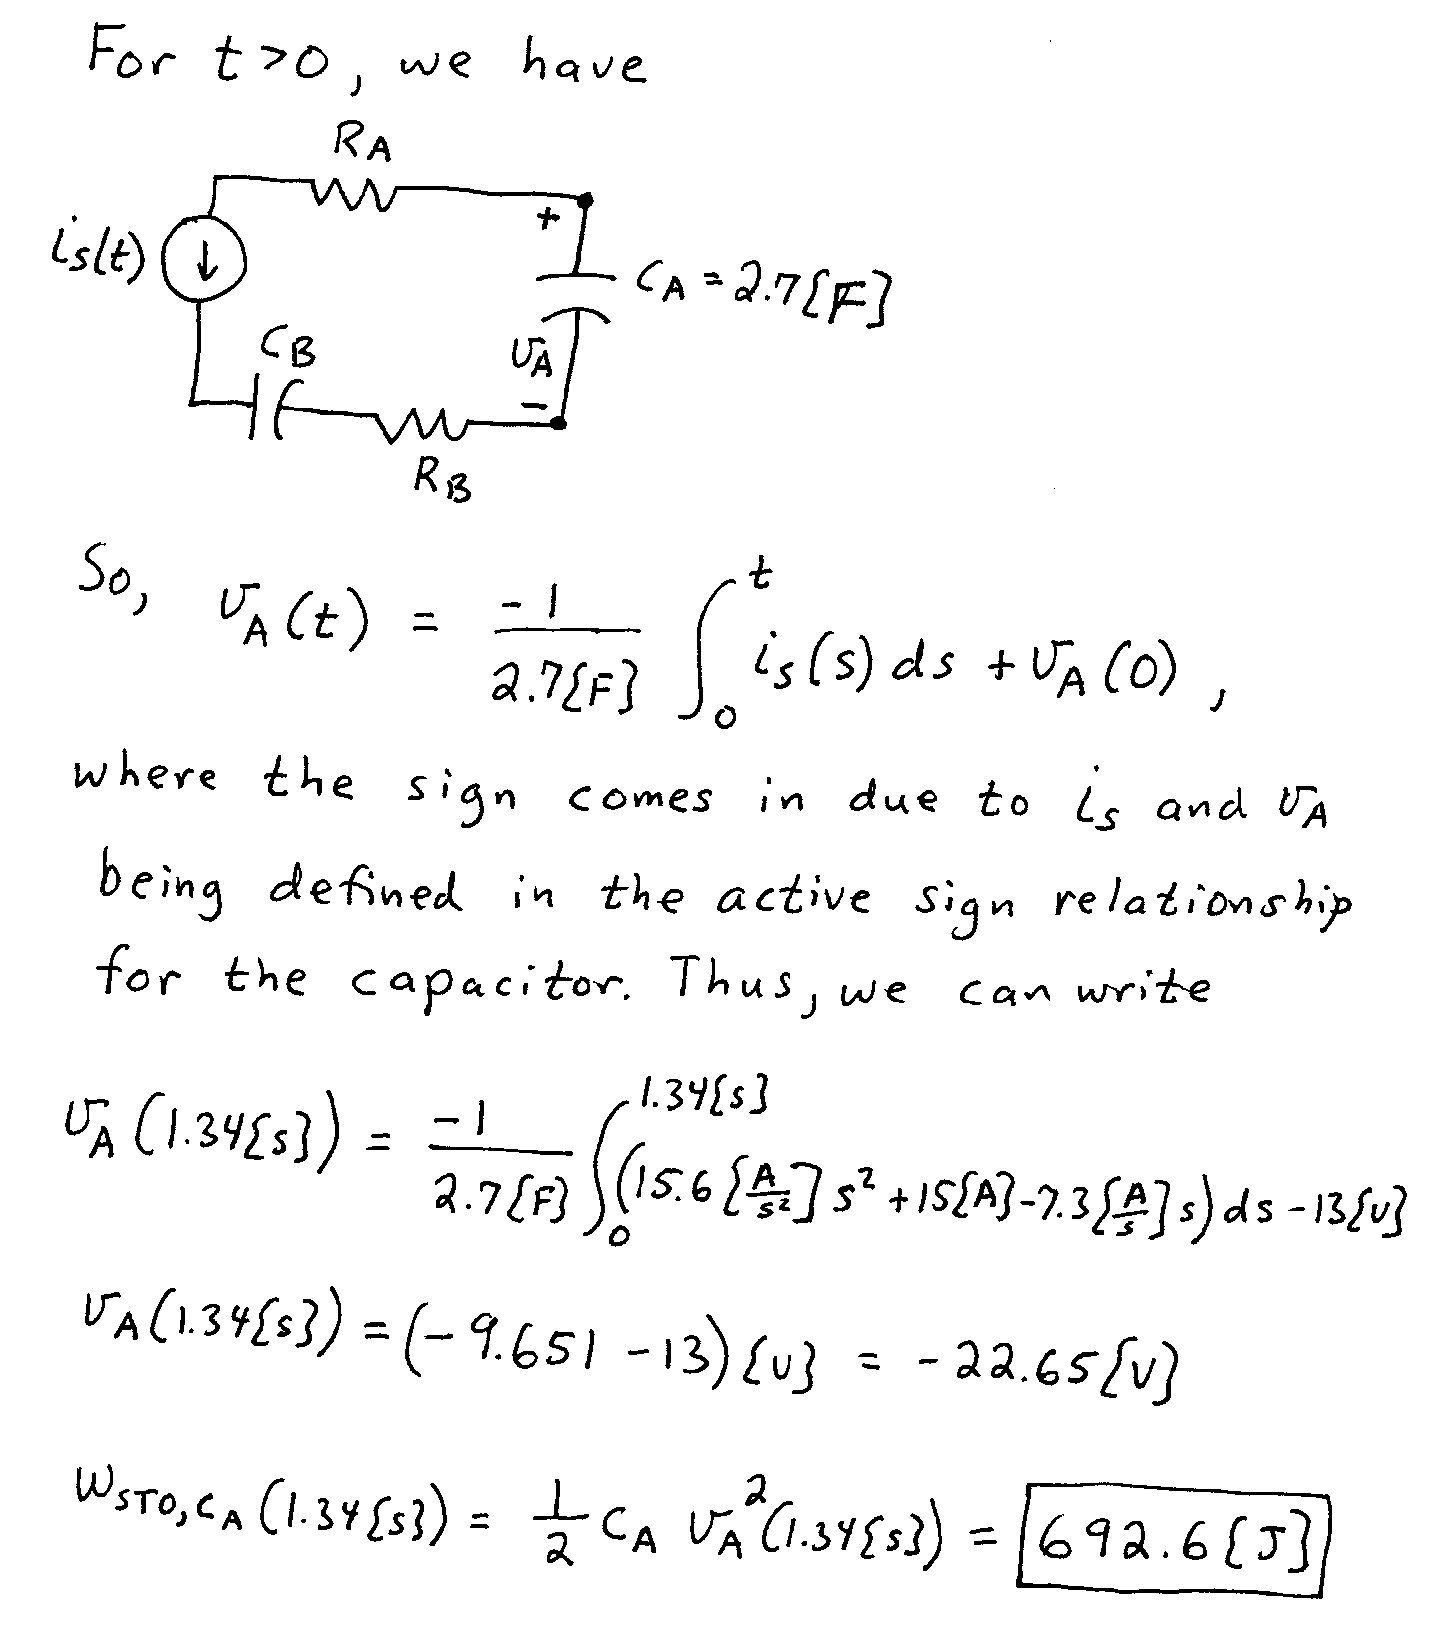 For t>0, we have
R_A
i_s(t) ↓
+
C_A = 2.7[F]
C_B
v_A
-
R_B
So, v_A(t) = -1/2.7[F] ∫_0^t i_s(s) ds + v_A(0),
where the sign comes in due to i_s and v_A
being defined in the active sign relationship
for the capacitor. Thus, we can write
v_A(1.34[s]) = -1/2.7[F] ∫_0^1.34[s] (15.6[A/s²] s² + 15[A] - 7.3[A/s] s) ds - 13[V]
v_A(1.34[s]) = (-9.651 - 13)[V] = -22.65[V]
W_STO,C_A(1.34[s]) = 1/2 C_A v_A²(1.34[s]) = 692.6[J]